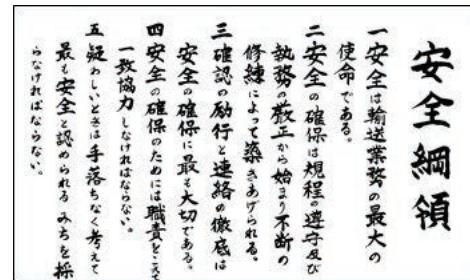 安全綱領
一安全は輸送業務の最大の
使命である。
二安全の確保は規程の遵守及び
執務の厳正から始まり不断の
修練によって築きあげられる。
三確認の励行と連絡の徹底は
安全の確保に最も大切である。
四安全の確保のためには職責をこえて
一致協力しなければならない。
五疑わしいときは手落ちなく考えて
最も安全と認められるみちを採
らなければならない。